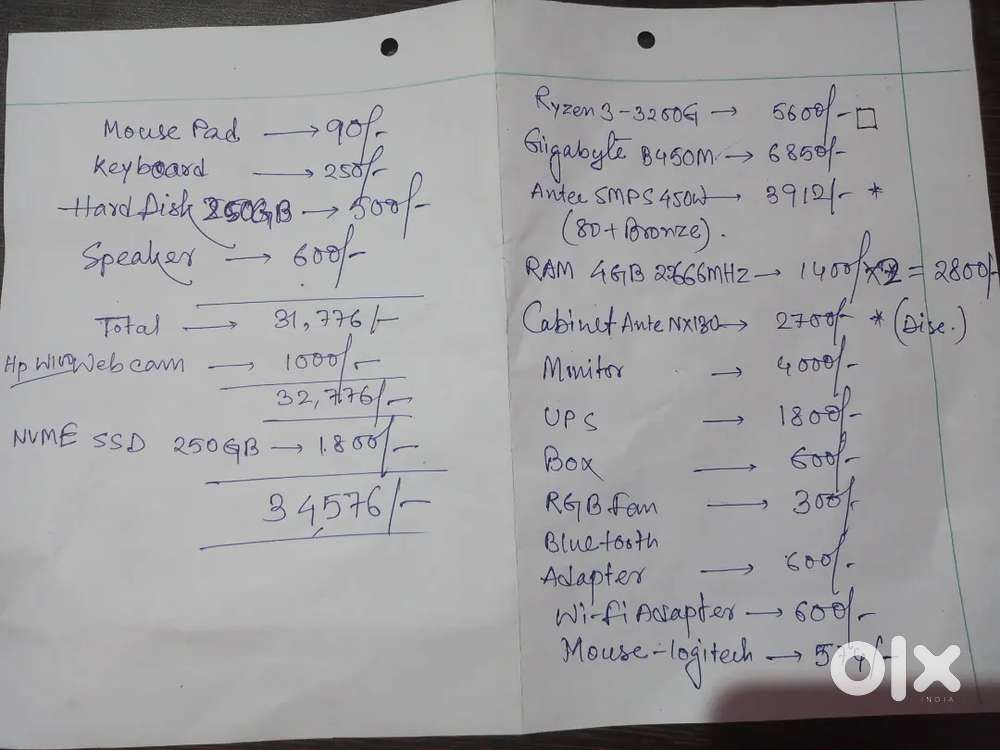 Mouse Pad → 90/-
Keyboard → 250/-
Hard Disk 250GB → 500/-
Speaker → 600/-
Total → 31,776/-
Hp W100 Web cam → 1000/-
32,776/-
NVME SSD 250GB → 1800/-
34,576/-
Ryzen 3-3200G → 5600/-
Gigabyte B450M → 6850/-
Antec SMPS 450W → 3912/- *
(80+ Bronze).
RAM 4GB 2666MHz → 1400/- x 2 = 2800/-
Cabinet Ante NX180 → 2700/- * (Disc.)
Monitor → 4000/-
UPS → 1800/-
Box → 600/-
RGB Fan → 300/-
Bluetooth
Adapter → 600/-
Wi-fi Adapter → 600/-
Mouse-logitech → 574/-
olx
INDIA